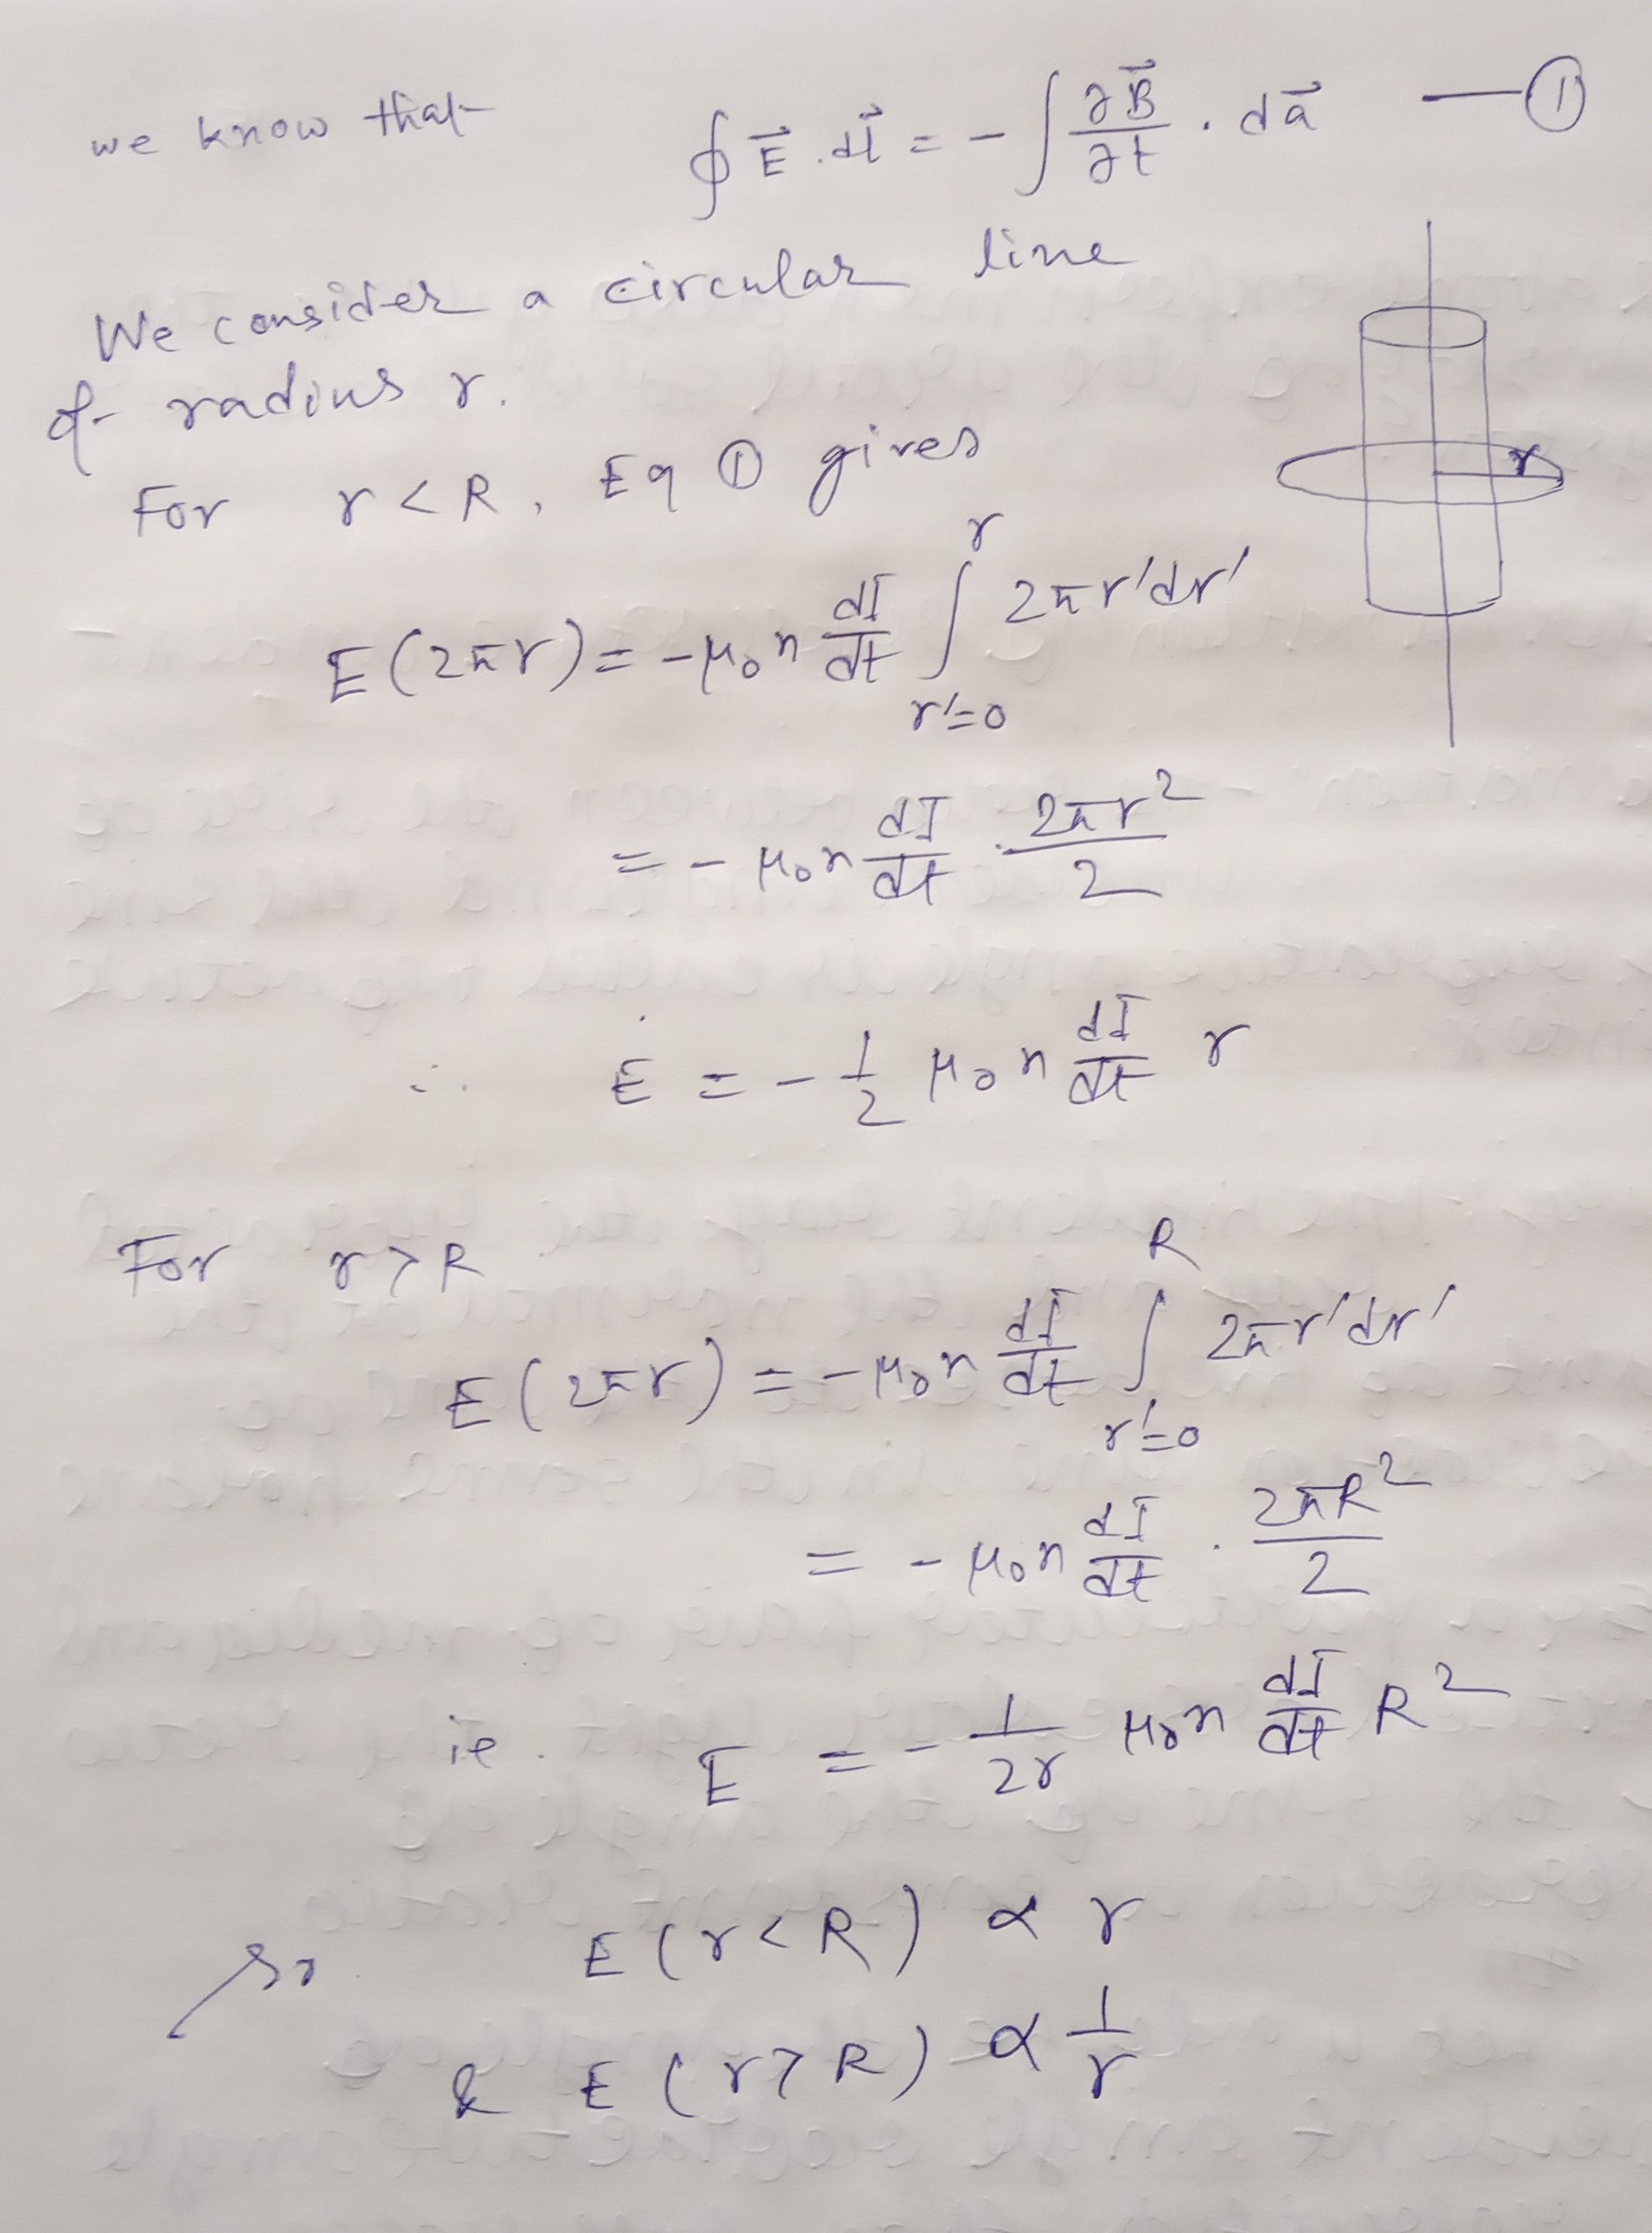 we know that ∮ E⃗ . dl⃗ = - ∫ ∂B⃗/∂t . da⃗ — ①
We consider a circular line
of radius r.
For r < R, Eq ① gives
r
E (2πr) = -μ₀n dI/dt ∫ 2πr'dr'
r'=0
= - μ₀n dI/dt . 2πr²/2
∴ E = - 1/2 μ₀n dI/dt r
For r > R
E (2πr) = -μ₀n dI/dt ∫ 2πr'dr'
R
r'=0
= - μ₀n dI/dt . 2πR²/2
ie. E = - 1/2r μ₀n dI/dt R²
so E (r < R) ∝ r
& E (r > R) ∝ 1/r